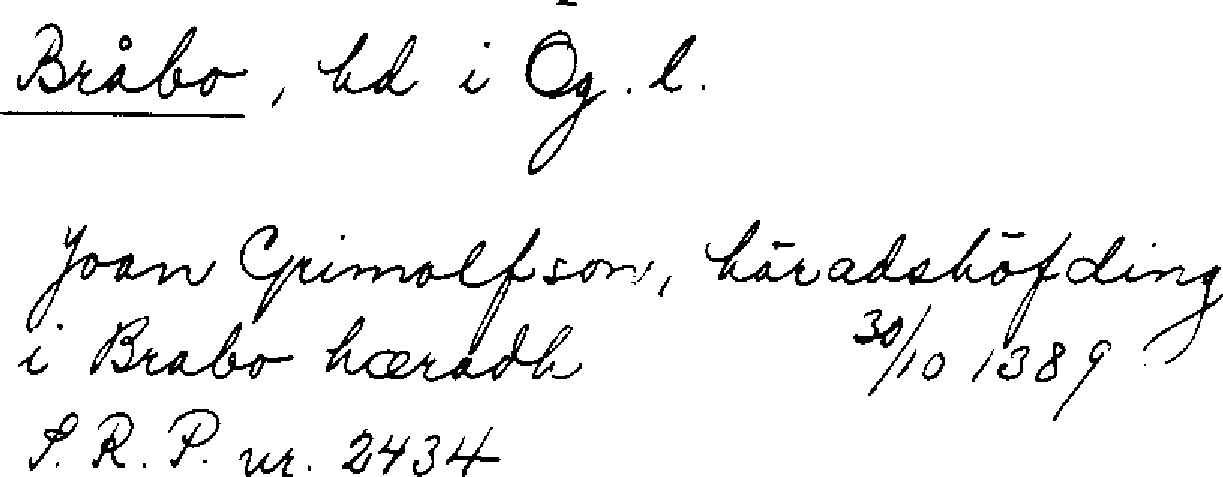 Bråbo, hd i Ög. l.
Joan Grimolfson, häradshöfding
i Brabo hæradh 30/10 1389
S. R. P. nr. 2434